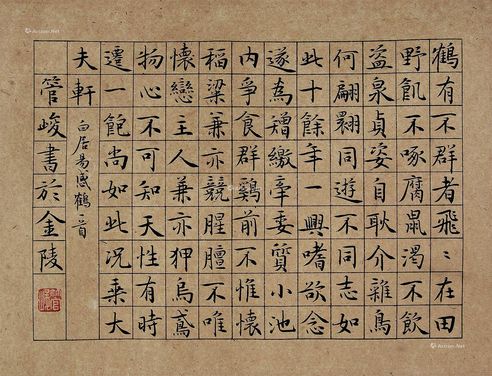 鶴有不群者飛〻在田
野飢不啄腐鼠渴不飲
盜泉貞姿自耿介雜鳥
何翩翾同遊不同志如
此十餘年一興嗜欲念
遂為矰繳牽委質小池
內爭食群鷄前不惟懷
稻粱兼亦競腥膻不唯
懷戀主人兼亦狎烏鳶
物心不可知天性有時
遷一飽尚如此況乘大
夫軒
白居易感鶴一首
管峻書於金陵